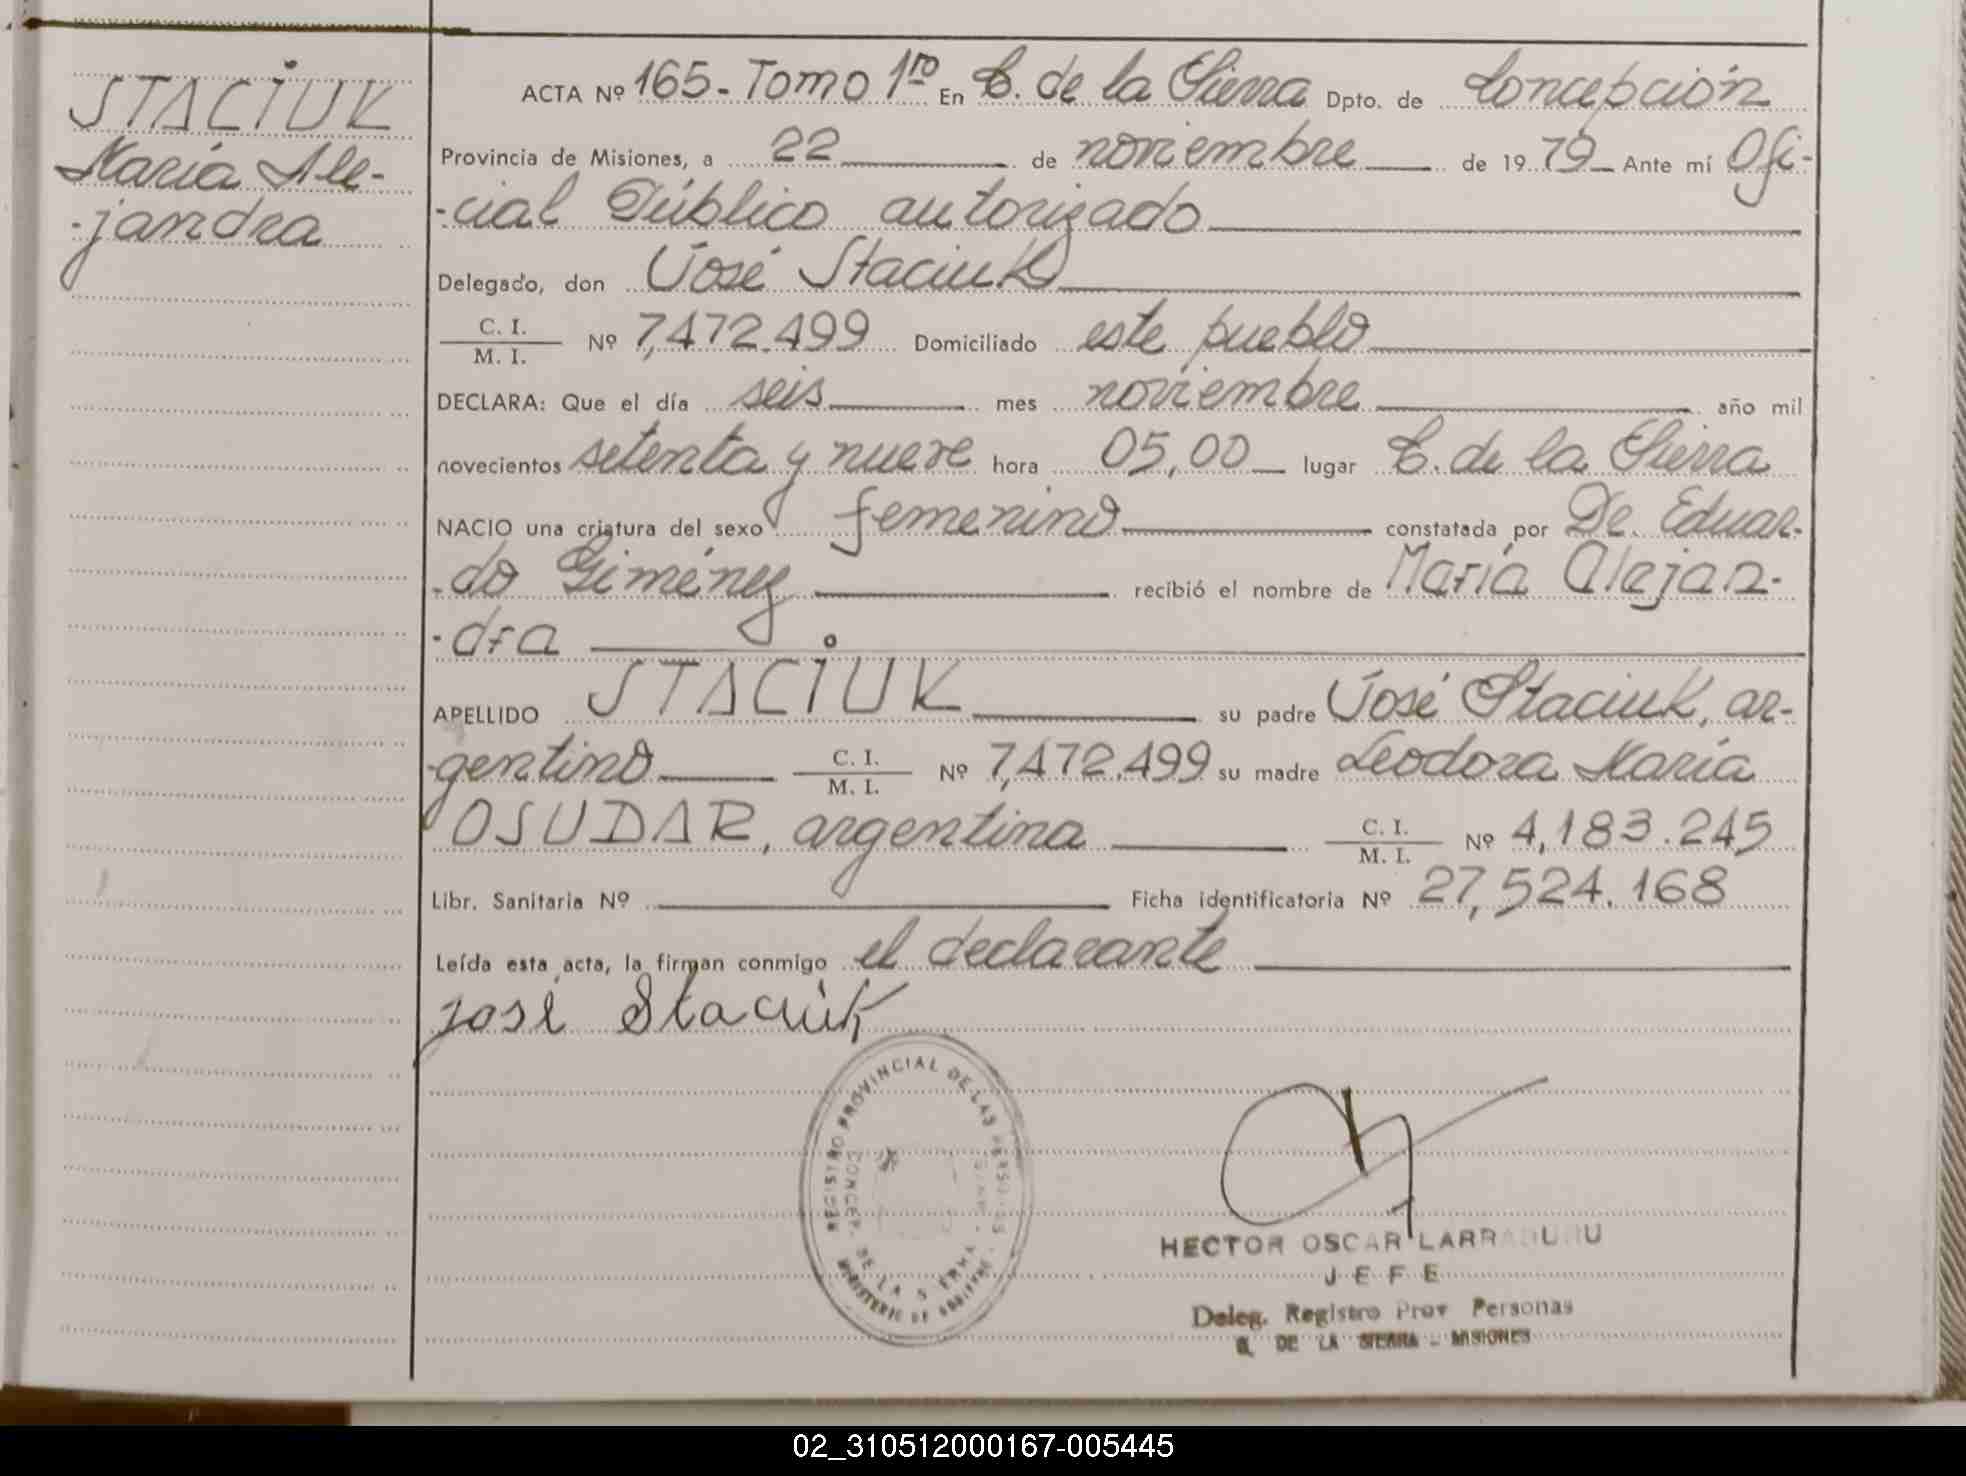 STACIUK
María Ale-
-jandra
ACTA Nº 165 - Tomo 1ro En C. de la Sierra Dpto. de Concepción
Provincia de Misiones, a 22 de noviembre de 1979 Ante mí Ofi-
-cial Público autorizado
Delegado, don José Staciuk
C. I.
M. I. Nº 7,472.499 Domiciliado este pueblo
DECLARA: Que el día seis mes noviembre año mil
novecientos setenta y nueve hora 05,00 lugar C. de la Sierra
NACIO una criatura del sexo femenino constatada por Dr. Eduar-
-do Giménez recibió el nombre de María Alejan-
-dra
APELLIDO STACIUK su padre José Staciuk, ar-
-gentino C. I. M. I. Nº 7,472.499 su madre Leodora María
OSUDAR, argentina C. I. M. I. Nº 4,183.245
Libr. Sanitaria Nº Ficha identificatoria Nº 27,524.168
Leída esta acta, la firman conmigo el declarante
José Staciuk
REGISTRO PROVINCIAL DE LAS PERSONAS
CONCEP. DE LA SIERRA
MINISTERIO DE GOBIERNO
HECTOR OSCAR LARRABURU
JEFE
Deleg. Registro Prov Personas
C. DE LA SIERRA - MISIONES
02_310512000167-005445